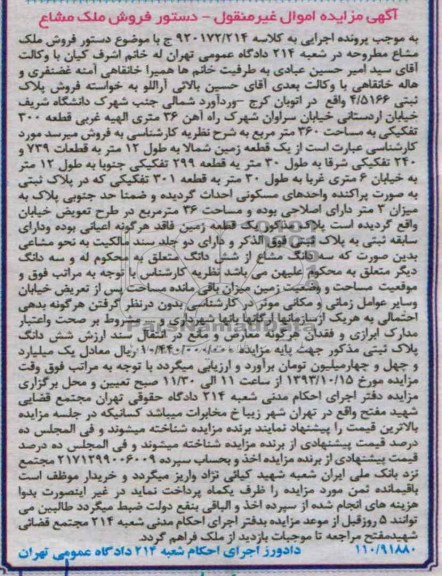 آگهی مزایده اموال غیرمنقول - دستور فروش ملک مشاع
به موجب پرونده اجرایی به کلاسه ۹۲۰۱۷۲/۲۱۴ ج با موضوع دستور فروش ملک
مشاع مطروحه در شعبه ۲۱۴ دادگاه عمومی تهران له خانم اشرف کیان با وکالت
آقای سید امیر حسین عبادی به طرفیت خانم ها همیرا خانقاهی آمنه غضنفری و
هاله خانقاهی با وکالت بعدی آقای حسین بالائی آراللو به خواسته فروش پلاک
ثبتی ۴/۵۱۶۶ واقع در اتوبان کرج -وردآورد شمالی جنب شهرک دانشگاه شریف
خیابان اردستانی خیابان سراوان شهرک راه آهن ۳۶ متری الهیه غربی قطعه ۳۰۰
تفکیکی به مساحت ۳۶۰ متر مربع به شرح نظریه کارشناسی به فروش میرسد مورد
کارشناسی عبارت است از یک قطعه زمین شمالا به طول ۱۲ متر به قطعات ۷۳۹ و
۲۴۰ تفکیکی شرقا به طول ۳۰ متر به قطعه ۲۹۹ تفکیکی جنوبا به طول ۱۲ متر
به خیابان ۶ متری غربا به طول ۳۰ متر به قطعه ۳۰۱ تفکیکی که در پلاک ثبتی
به صورت پراکنده واحدهای مسکونی احداث گردیده و ضمنا حد جنوبی پلاک به
میزان ۳ متر دارای اصلاحی بوده و مساحت ۳۶ مترمربع در طرح تعویض خیابان
واقع گردیده است پلاک مذکور یک قطعه زمین فاقد هرگونه اعیانی بوده ودارای
سابقه ثبتی به پلاک ثبتی فوق الذکر و دارای دو جلد سند مالکیت به نحو مشاعی
بدین صورت که سه دانگ مشاع از شش دانگ متعلق به محکوم له و سه دانگ
دیگر متعلق به محکوم علیهن می باشد نظریه کارشناس با توجه به مراتب فوق و
موقعیت مساحت و وضعیت زمین میزان باقی مانده مساحت پس از تعریض خیابان
وسایر عوامل زمانی و مکانی موثر در کارشناسی بدون درنظر گرفتن هرگونه بدهی
احتمالی به هریک ازسازمانها ارگانها بانها شهرداری و مشروط بر صحت واعتبار
مدارک ابرازی و فقدان هرگونه معارض و مانع در انتقال سند ارزش شش دانگ
پلاک ثبتی مذکور جهت پایه مزایده ریال معادل یک میلیارد
و چهل و چهارمیلیون تومان برآورد و ارزیابی میگردد با توجه به مراتب فوق وقت
مزایده مورخ ۱۳۹۳/۱۰/۱۵ از ساعت ۱۱ الی ۱۱/۳۰ صبح تعیین و محل برگزاری
مزایده دفتر اجرای احکام مدنی شعبه ۲۱۴ دادگاه حقوقی تهران مجتمع قضایی
شهید مفتح واقع در تهران شهر زیبا خ مخابرات میباشد کسانیکه در جلسه مزایده
بالاترین قیمت را پیشنهاد نمایند برنده مزایده شناخته میشوند و فی المجلس ده
درصد قیمت پیشنهادی از برنده مزایده شناخته میشوند و فی المجلس ده درصد
قیمت پیشنهادی از برنده مزایده اخذ و بحساب سپرده ۲۱۷۱۲۹۹۰۰۶۰۰۹ مجتمع
نزد بانک ملی ایران شعبه شهید کیائی نژاد واریز میگردد و خریدار موظف است
باقیمانده ثمن مورد مزایده را ظرف یکماه پرداخت نماید در غیر اینصورت بدوا
هزینه های انجام شده از سپرده اخذ و الباقی بنفع دولت ضبط میگردد طالبین می
توانند ۵ روزقبل از موعد مزایده بدفتر اجرای احکام مدنی شعبه ۲۱۴ مجتمع قضائی
شهیدمفتح مراجعه تا موجبات بازدید از ملک فراهم گردد.
۱۱۰/۹۱۸۸۰ دادورز اجرای احکام شعبه ۲۱۴ دادگاه عمومی تهران